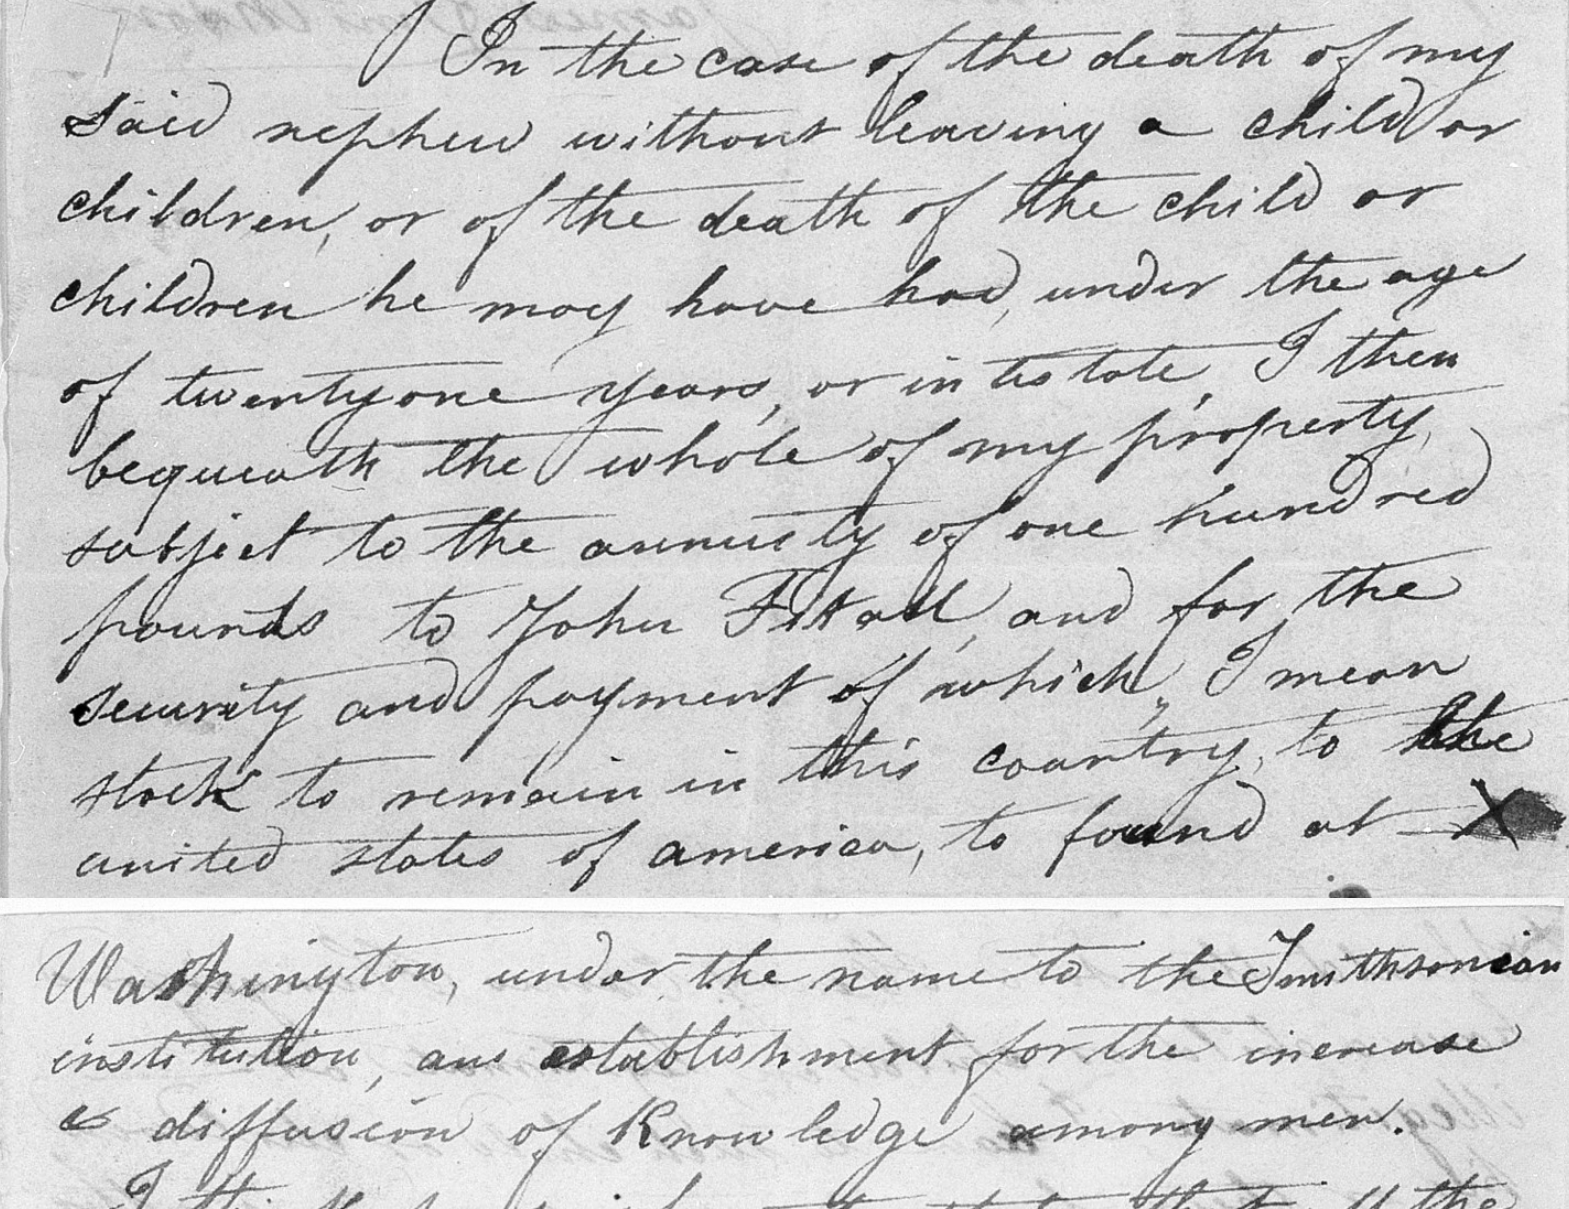 In the case of the death of my
said nephew without leaving a child or
children, or of the death of the child or
children he may have had, under the age
of twentyone years, or intestate, I then
bequeath the whole of my property,
subject to the annuity of one hundred
pounds to John Fitall, and for the
security and payment of which, I mean
stock to remain in this country, to the
united states of america, to found at X
Washington, under the name to the Smithsonian
institution, an establishment for the increase
& diffusion of Knowledge among men.
I think
the